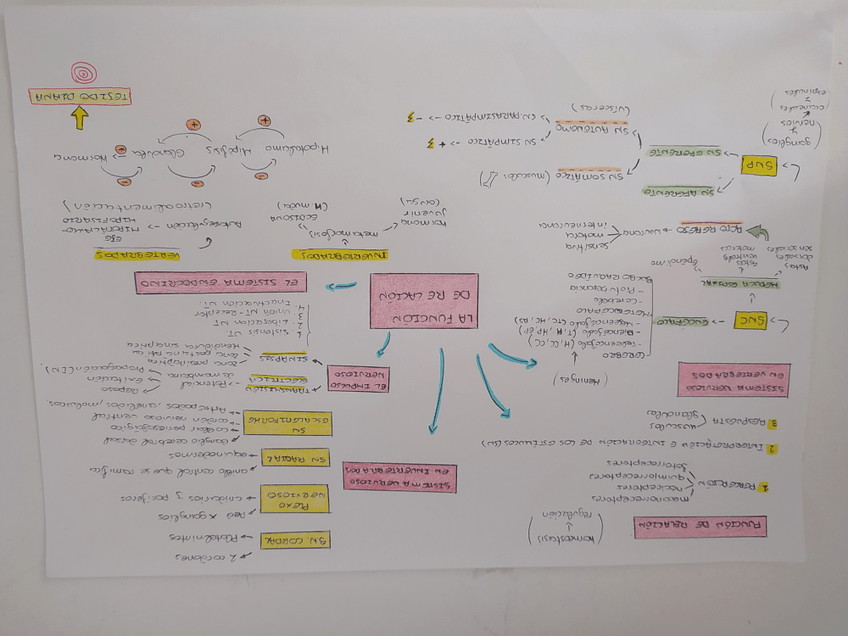 FUNCIÓN DE RELACIÓN
(homeostasis)
regulación
1 PERCEPCIÓN
mecanorreceptores
nociceptores
quimiorreceptores
fotorreceptores
2 INTERPRETACIÓN e INTEGRACIÓN DE LOS ESTÍMULOS
3 RESPUESTA
músculos
glándulas
SISTEMA NERVIOSO
EN VERTEBRADOS
SNC
ENCÉFALO
(Meninges)
CEREBRO
- Telencéfalo
- Diencéfalo
- Mesencéfalo
METENCÉFALO
- Cerebelo
- Protu
BULBO RAQUÍDEO
MÉDULA ESPINAL
Astas
dorsales
sensoriales
Astas
ventrales
motoras
Epéndimo
ACTO REFLEJO → neurona
sensitiva
motora
interneurona
SNP
ganglios
y
nervios
craneales
y
espinales
SN AFERENTE
SN EFERENTE
SN SOMÁTICO (músculos)
SN AUTÓNOMO
(vísceras)
SN SIMPÁTICO -> +
SN PARASIMPÁTICO -> -
LA FUNCIÓN
DE RELACIÓN
SISTEMA NERVIOSO
EN INVERTEBRADOS
SN. CORDAL
2 cordones
Platelmintos
PLEXO
NERVIOSO
Red x ganglios
cnidarios y poríferos
SN RADIAL
anillo central que se ramifica
equinodermos
SN
GLANGLIFORME
ganglio cerebral dorsal
collar periesofágico
cordón nervioso ventral
Artrópodos, anélidos, moluscos
EL IMPULSO
NERVIOSO
TRANSMISIÓN
ELÉCTRICA
-> Potencial
de membrana
Reposo
Excitación
Propagación
SINAPSIS
zona presináptica
zona postsináptica
Hendidura sináptica
1. Síntesis NT
2. Liberación NT
3. Unión NT-Receptor
4. Inactivación NT
EL SISTEMA ENDOCRINO
INVERTEBRADOS
metamorfosis
hormona
juvenil
ECDISONA
(M. muda)
VERTEBRADOS
EJE
HIPOTÁLAMO
HIPOFISARIO
-> Autorregulación
(retroalimentación)
Hipotálamo
Hipófisis
Glándula -> Hormona
+
+
-
-
-
TEJIDO DIANA